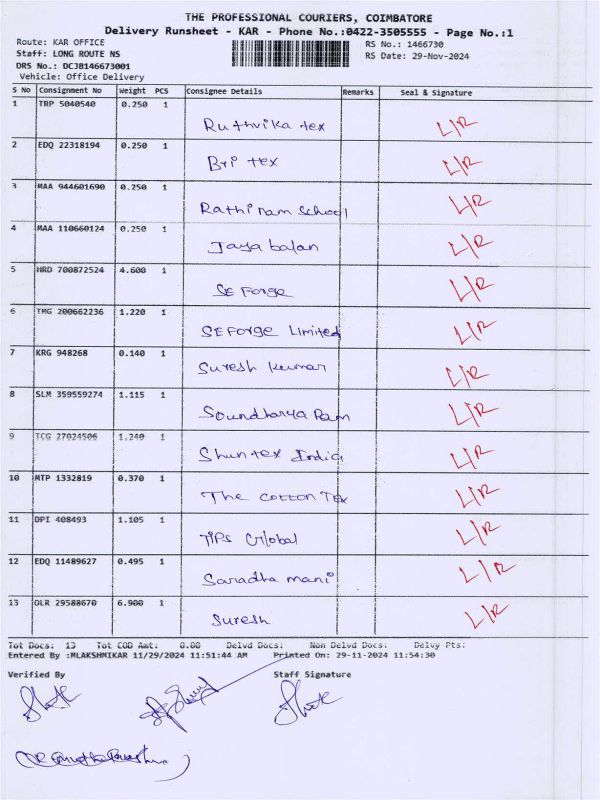 THE PROFESSIONAL COURIERS, COIMBATORE
Delivery Runsheet - KAR - Phone No.:0422-3505555 - Page No.:1
Route: KAR OFFICE
RS No.: 1466730
Staff: LONG ROUTE NS
RS Date: 29-Nov-2024
DRS No.: DCJ8146673001
Vehicle: Office Delivery
S No Consignment No Weight PCS Consignee Details Remarks Seal & Signature
1 TRP 5040540 0.250 1 Ruthvika tex L/R
2 EDQ 22318194 0.250 1 Bri tex L/R
3 MAA 944601690 0.250 1 Rathinam School L/R
4 MAA 110660124 0.250 1 Jaya balan L/R
5 HRD 700872524 4.600 1 SE Forge L/R
6 TMG 200662236 1.220 1 SEForge Limited L/R
7 KRG 948268 0.140 1 Suresh kumar L/R
8 SLM 359559274 1.115 1 Soundharya Ram L/R
9 TCG 27024506 1.240 1 Shun tex India L/R
10 MTP 1332819 0.370 1 The Cotton Tex L/R
11 DPI 408493 1.105 1 TIPs Global L/R
12 EDQ 11489627 0.495 1 Saradha mani L/R
13 OLR 29588670 6.900 1 Suresh L/R
Tot Docs: 13 Tot COD Amt: 0.00 Delvd Docs: Non Delvd Docs: Delvy Pts:
Entered By :MLAKSHMIKAR 11/29/2024 11:51:44 AM Printed On: 29-11-2024 11:54:30
Verified By Staff Signature